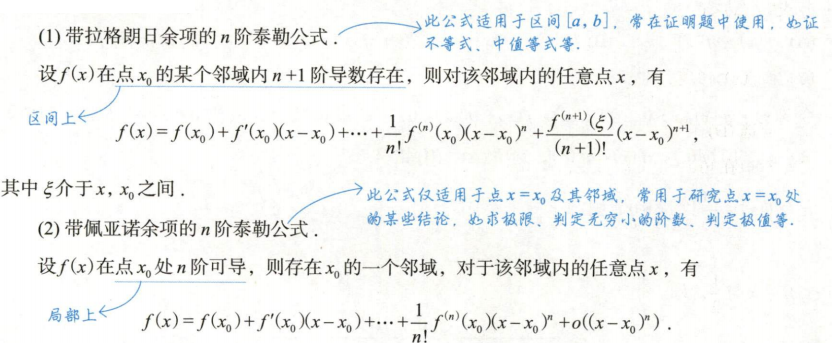 (1) 带拉格朗日余项的 n 阶泰勒公式.
此公式适用于区间[a, b], 常在证明题中使用, 如证
不等式、中值等式等.
设 f(x) 在点 x₀ 的某个邻域内 n+1 阶导数存在, 则对该邻域内的任意点 x, 有
区间上
f(x)=f(x₀)+f′(x₀)(x-x₀)+⋯+\frac{1}{n!}f⁽ⁿ⁾(x₀)(x-x₀)ⁿ+\frac{f⁽ⁿ⁺¹⁾(ξ)}{(n+1)!}(x-x₀)ⁿ⁺¹,
其中 ξ 介于 x, x₀ 之间.
此公式仅适用于点 x=x₀ 及其邻域, 常用于研究点 x=x₀ 处
的某些结论, 如求极限、判定无穷小的阶数、判定极值等.
(2) 带佩亚诺余项的 n 阶泰勒公式.
设 f(x) 在点 x₀ 处 n 阶可导, 则存在 x₀ 的一个邻域, 对于该邻域内的任意点 x, 有
局部上
f(x)=f(x₀)+f′(x₀)(x-x₀)+⋯+\frac{1}{n!}f⁽ⁿ⁾(x₀)(x-x₀)ⁿ+o((x-x₀)ⁿ).